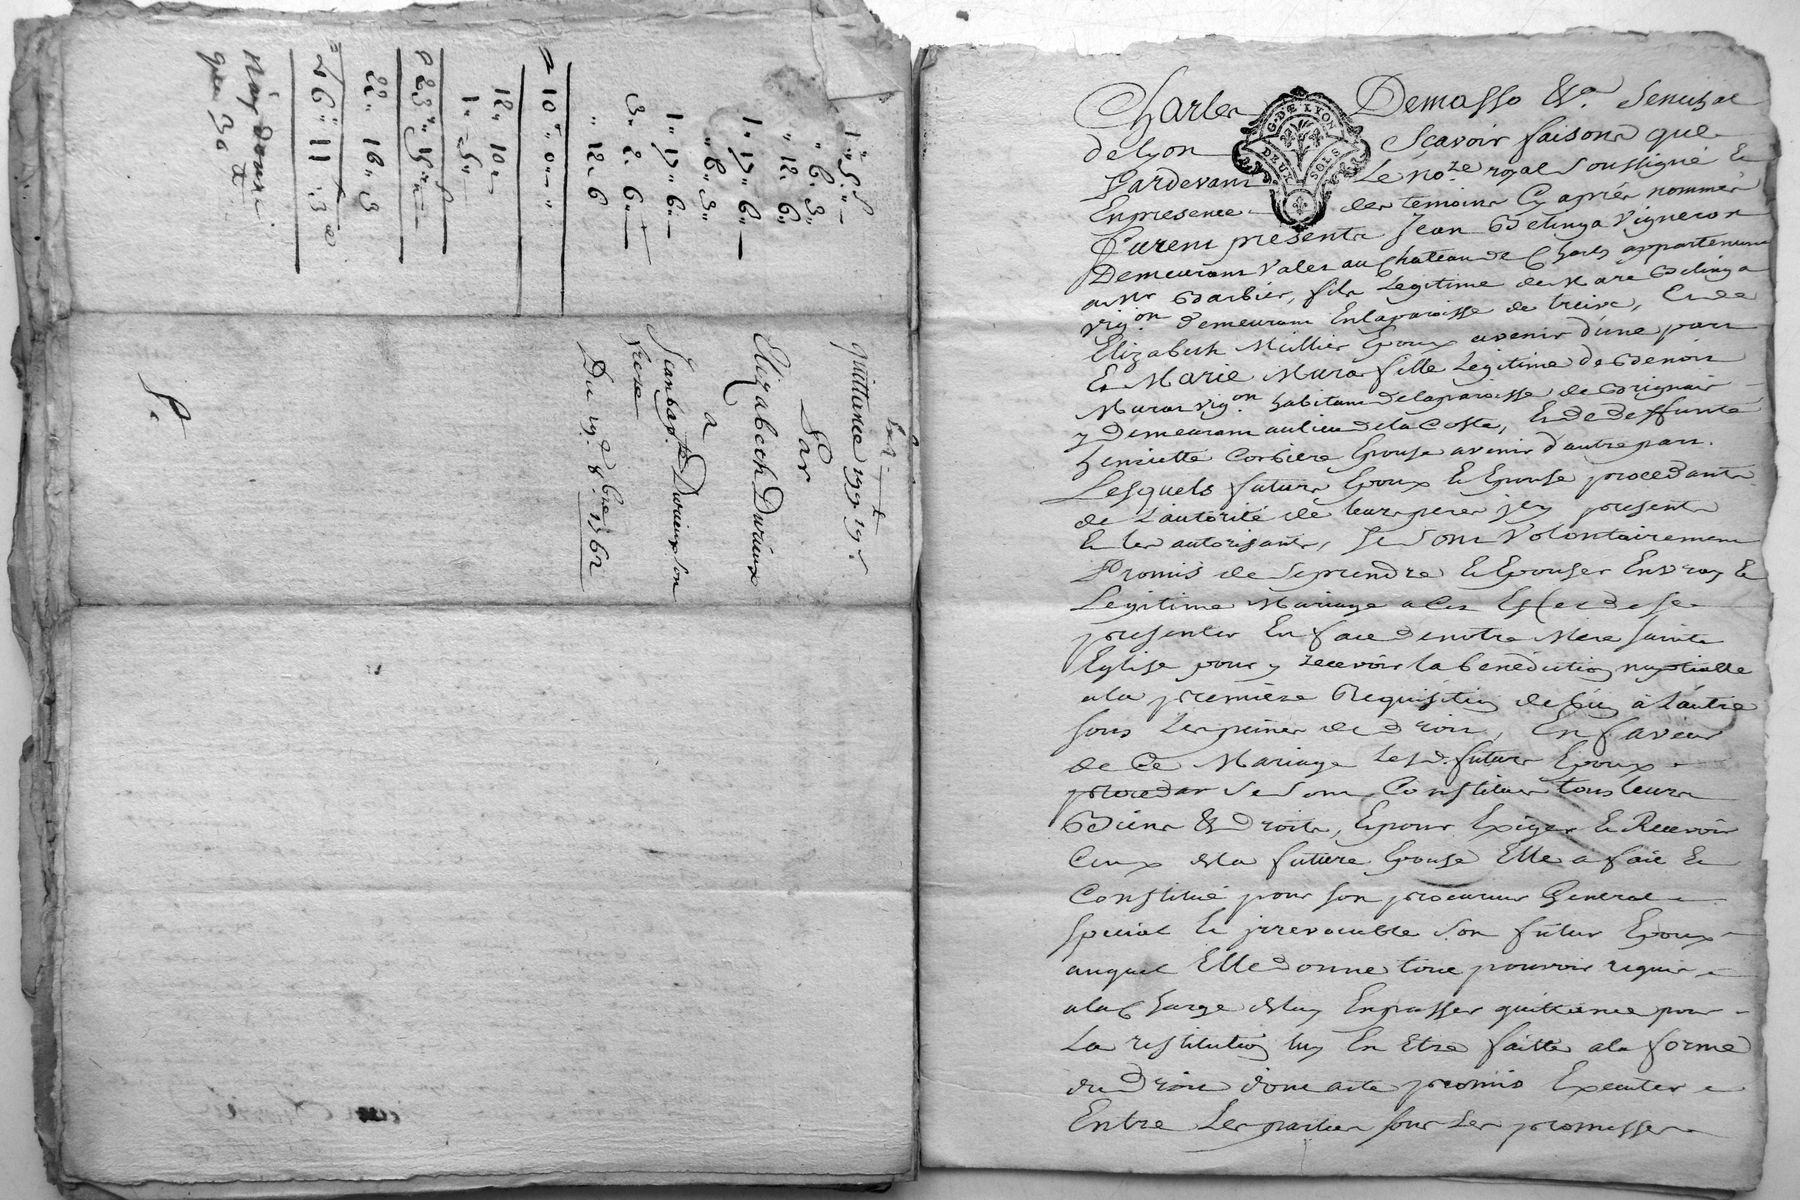 1" 5"
" 6" 3"
" 12" 6"
1" 17" 6"
" 6" 3"
1" 17" 6"
3" 2" 6"
" 12" 6
10" 0" "
12" 10"
1" 5"
23" 15"
22" 16" 3
26" 11" 3
quittance
Par
Elizabeth Durieux
a
Jean bapt. Durieux son
frere
Du 19e 8bre 1762
Charles Demasso &a Senechal
de Lyon Scavoir faisons que
Pardevant Le nore royal soussigné &
En presence des temoins Cy aprés nommés
furent presents Jean Belinga Vigneron
Demeurant Valet au chateau de appartenant
a Mr Barbier, fils Legitime de Marc Belinga
vigon demeurant En la paroisse de treive, Et de
Elizabeth Millier Epoux avenir d'une part
Et Marie Muras fille Legitime de Benoit
Muras vigon habitant de la paroisse de Brignais
y Demeurant au lieu de la Coste, Et de deffunte
henriette Corbiere Epouse avenir d'autre part.
Lesquels futurs Epoux & Epouse procedants
de L'autorité de leurs peres icy presents
& les autorisants, se sont Volontairement
Promis de se prendre & Epouser En vray &
Legitime Mariage a Ces Effets de se
presenter En face de notre Mere sainte
Eglise pour y recevoir la benediction nuptialle
a la premiere Requisition de l'un à L'autre
sous Les peines de Droit, En faveur
de Ce Mariage Lesd. futurs Epoux
procedar se sont Constitués tous leurs
Biens & Droits, Et pour Exiger & Recevoir
Ceux de la future Epouse Elle a fait &
Constitué pour son procureur General
special & irrevocable son futur Epoux
auquel Elle donne tout pouvoir requis
a la Charge de luy En passer quittance pour
La restitution luy En Etre faitte a la forme
du Droit dont acte promis Executer
Entre Les parties sous Les promesses
G. DÆ LYON
DEUX SOLS